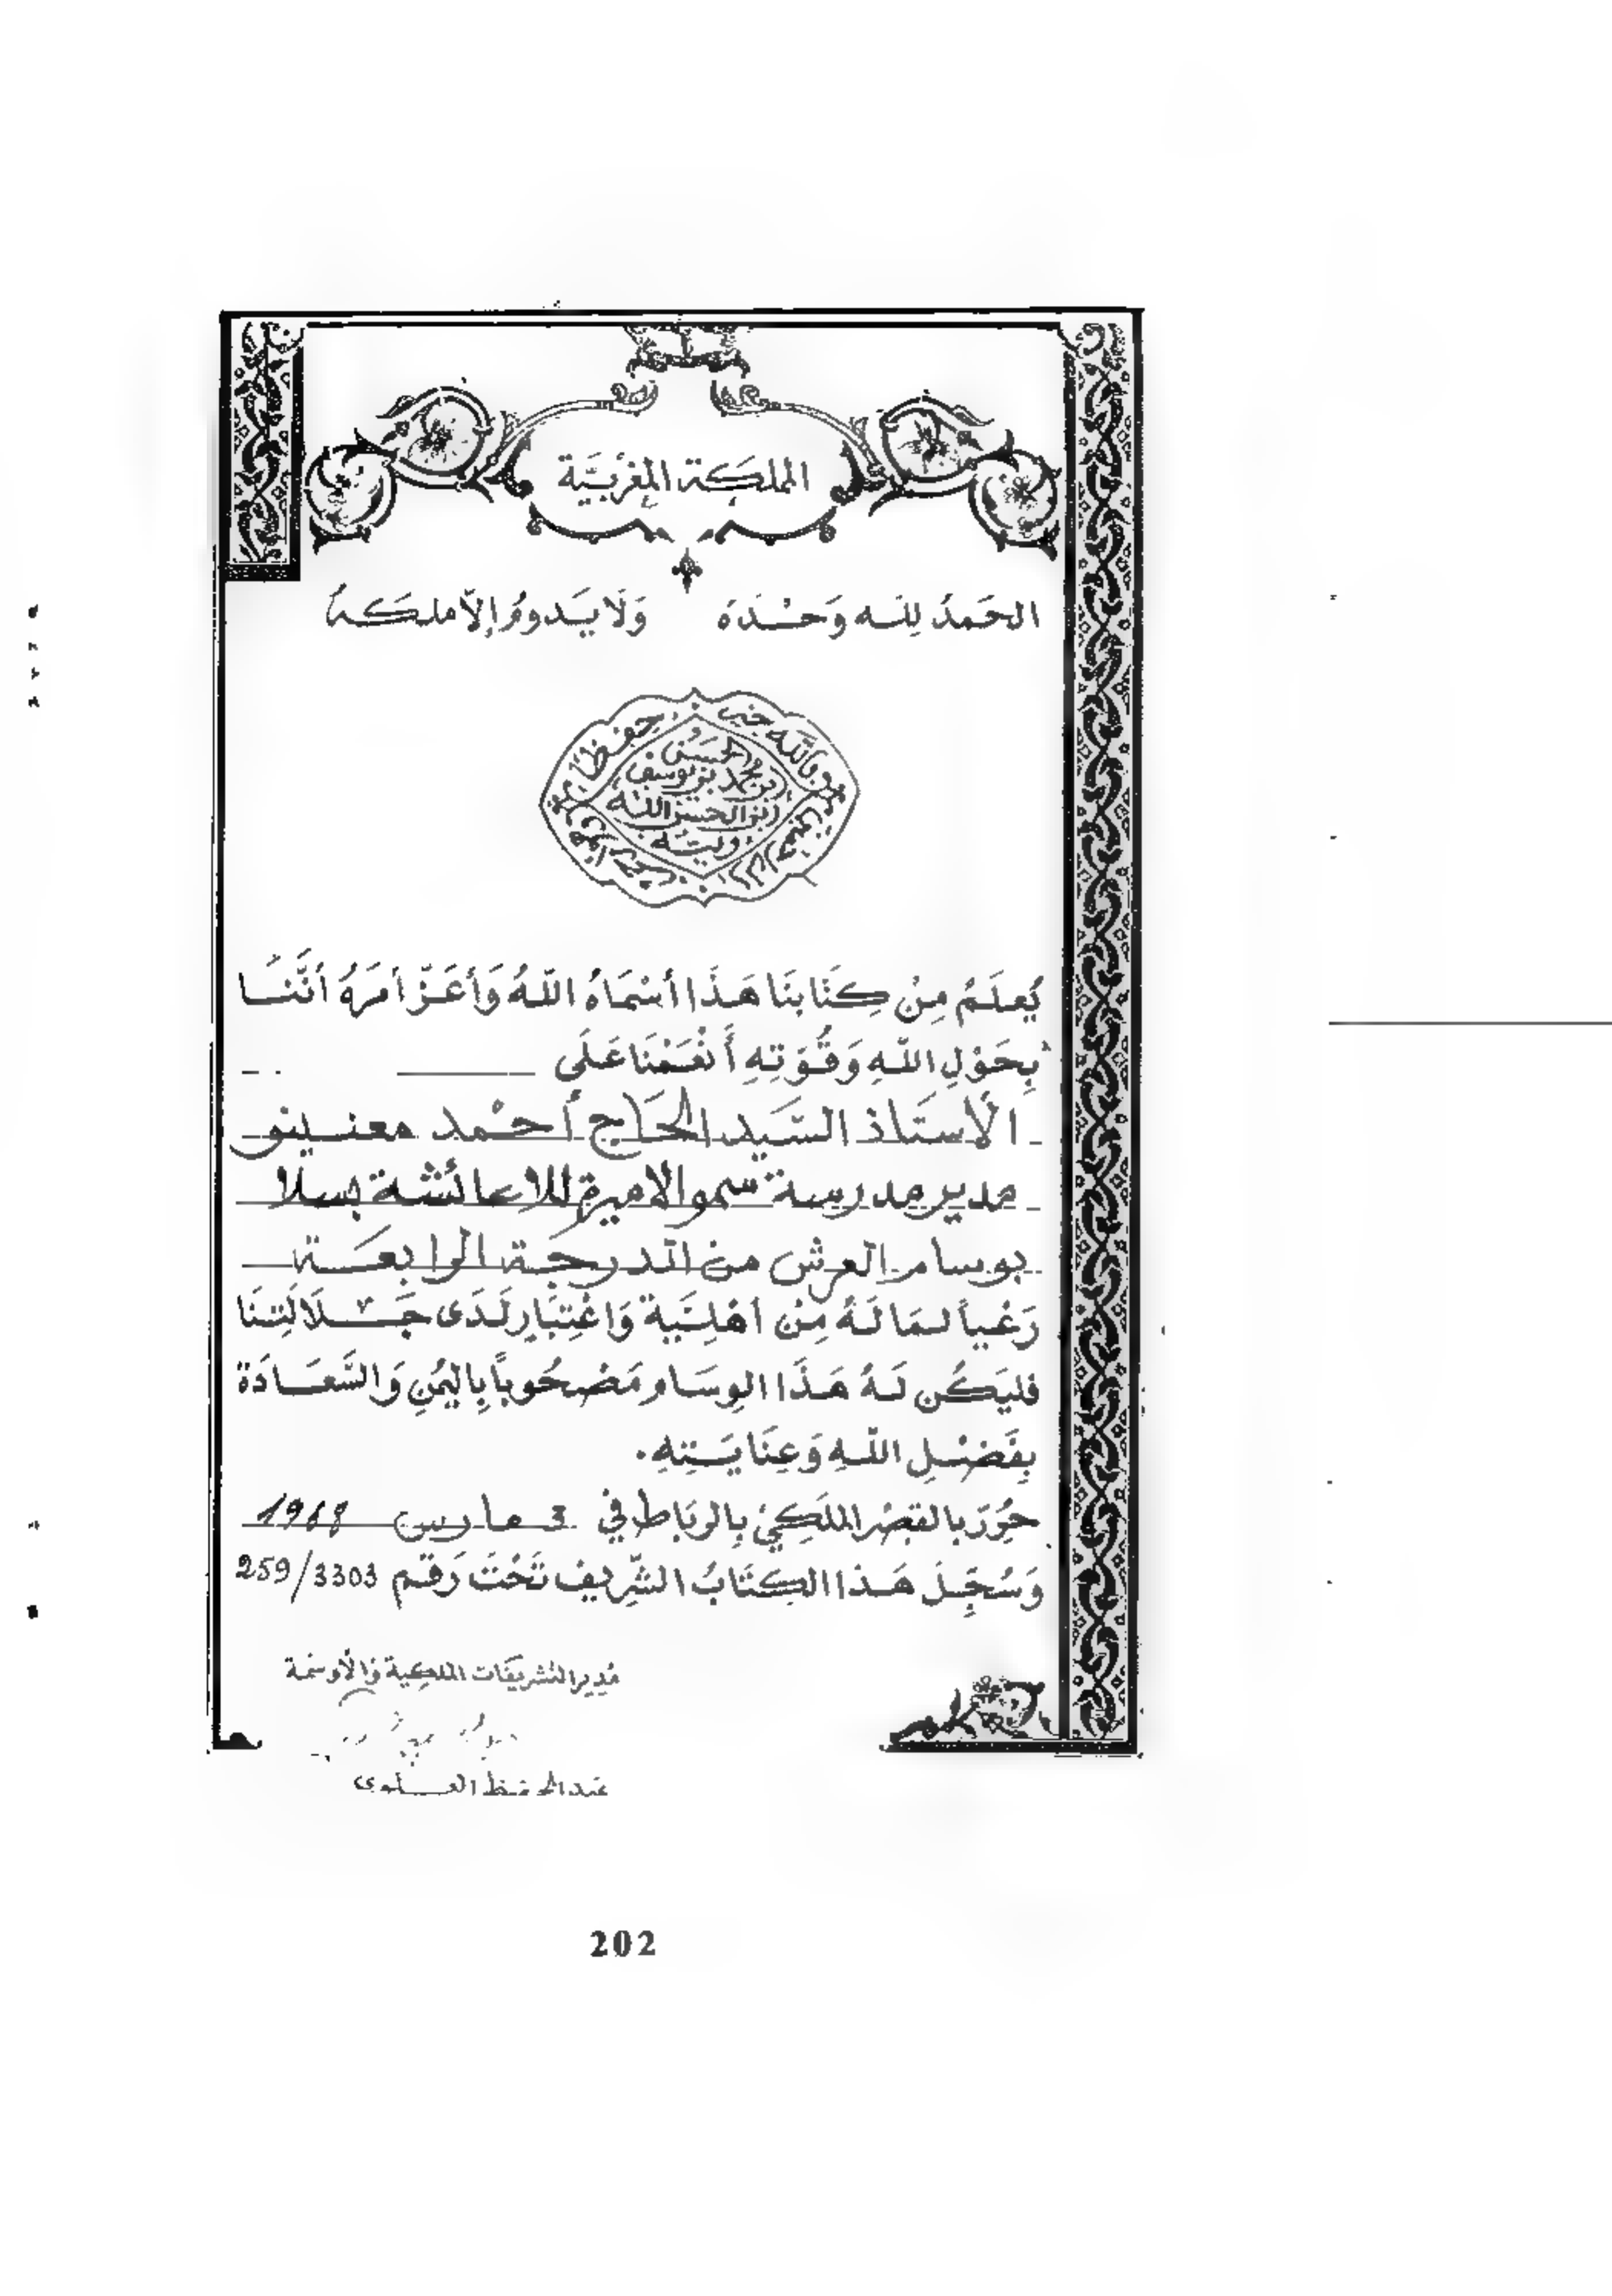 المملكة المغربيّة
الحَمدُ لِلّه وَحْدَهُ وَلَا يَدومُ إلّا ملكهُ
الحسن
بن محمد بن يوسف
بن الحسن الله
وليه
يُعلَمُ مِنْ كِتَابنَا هَذَا أسْمَاهُ اللّهُ وَأعَزّ أمرَهُ أنَّنَا
بِحَوْلِ اللّهِ وَقُوّتِهِ أَنْعَمْنَا عَلَى
الأستَاذ السَّيد الحَاج أحْمد معنينو
مدير مدرسة سمو الاميرة للا عائشة بسلا
بوسام العرش من الدرجَة الرابعَة
رَعْياً لمَا لَهُ مِنْ أهْلِيَّة وَاعْتِبَار لَدَى جَلَالَتِنَا
فليَكُن لَهُ هَذَا الوِسَام مَصْحُوباً بِاليُمْنِ وَالسَّعَادَة
بِفَضْلِ اللّهِ وَعِنَايَتِهِ.
حُرّرَ بالقَصْر المَلَكِيّ بِالرّبَاط في 3 مارس 1968
وَسُجِّلَ هَذا الكِتَابُ الشّرِيف تَحْتَ رَقم 259/3303
مُدِير التشريفَات الملكِية وَالأوسمة
عبد الحفيظ العلوي
202